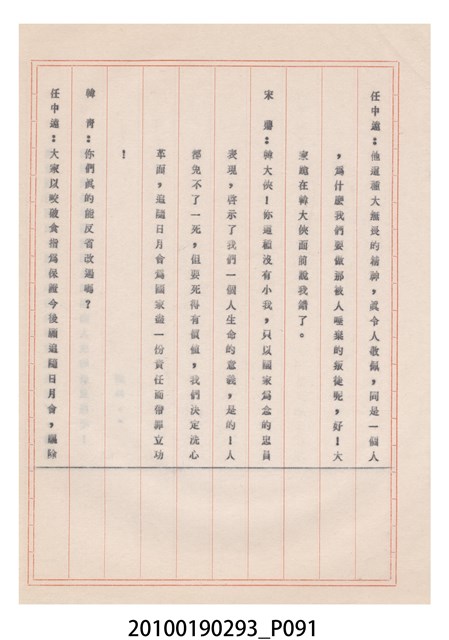 任中遠：他這種大無畏的精神，眞令人敬佩，同是一個人
，爲什麼我們要做那被人唾棄的叛徒呢，好！大
家跪在韓大俠面前說我錯了。
宋　鶚：韓大俠！你這種沒有小我，只以國家爲念的忠貞
表現，啓示了我們一個人生命的意義，是的！人
都免不了一死，但要死得有價值，我們決定洗心
革面，追隨日月會爲國家盡一份責任而帶罪立功
！
韓　青：你們眞的能反省改過嗎？
任中遠：大家以咬破食指爲保證今後願追隨日月會，驅除
20100190293_P091